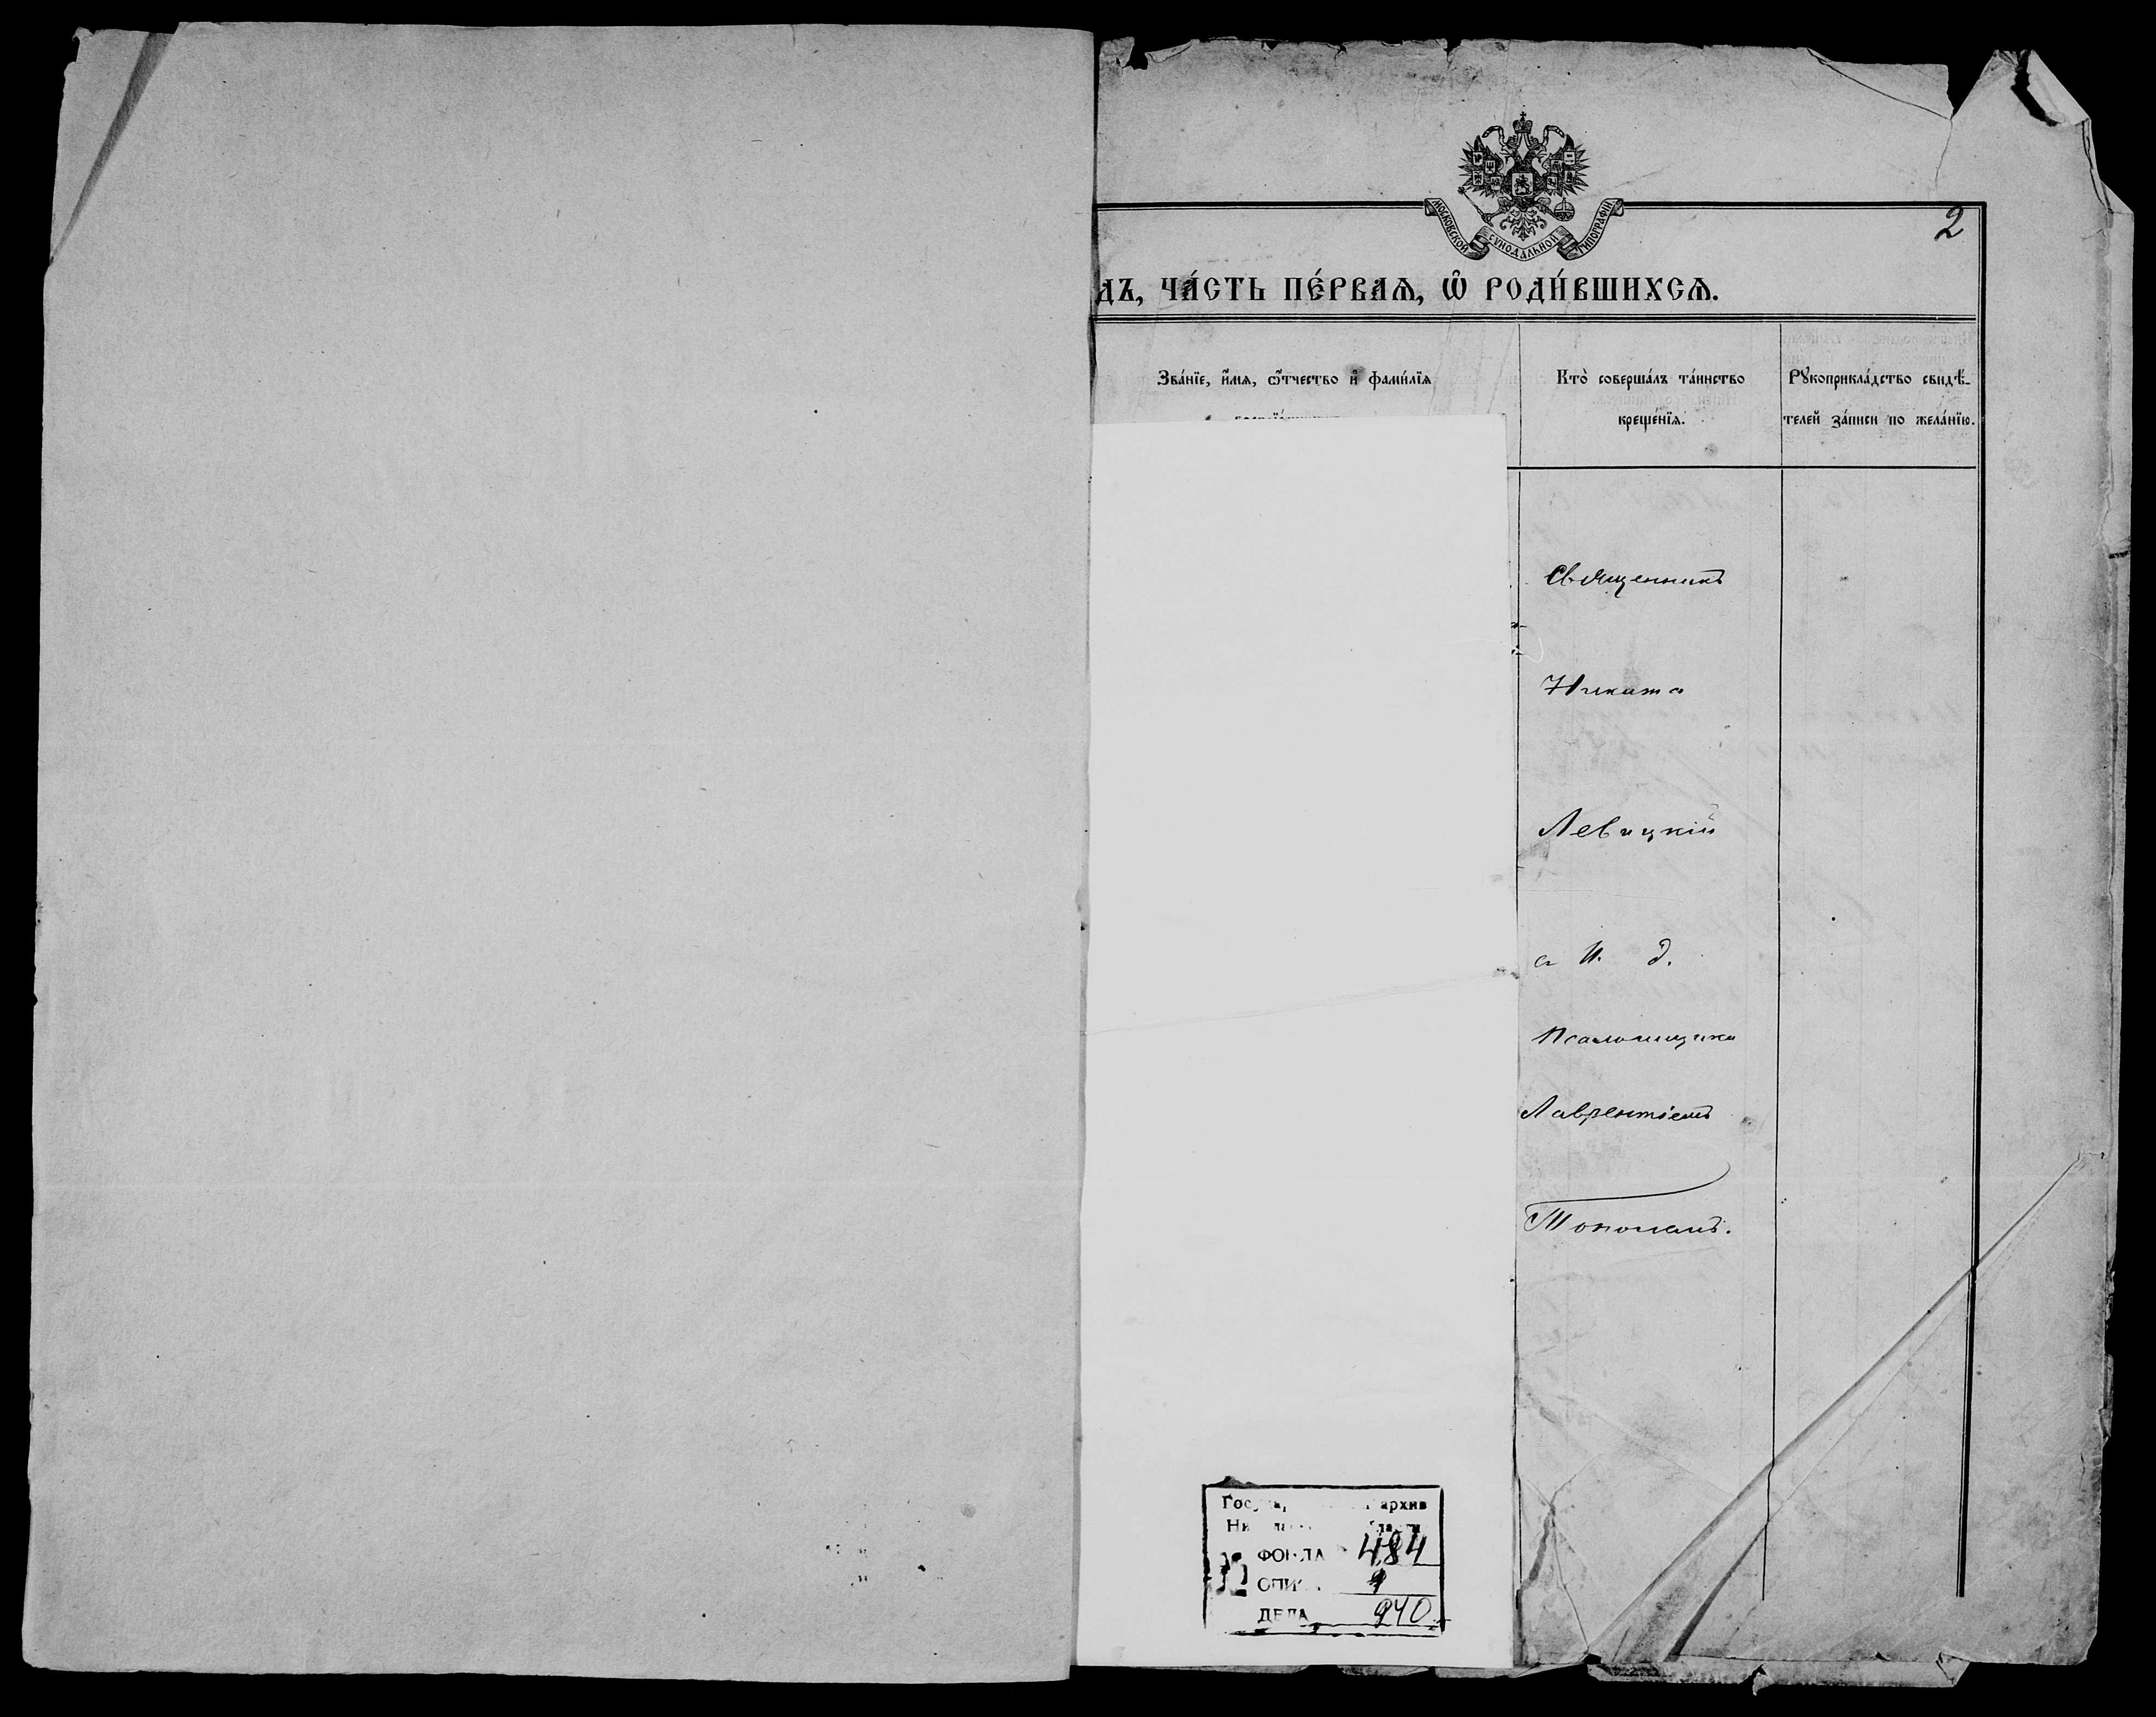 МОСКОВСКОЙ СУНОДАЛЬНОЙ ТИПОГРАФІИ
2
дъ, ча́сть пе́рваѧ, ѡ҆ роди́вшихсѧ.
Зва́нїе, и҆́мѧ, ѻ҆́тчество и҆ фами́лїѧ
Кто̀ соверша́лъ та́инство
крещє́нїѧ.
Рꙋкоприкла́дство свидѣ́-
телей за́писи по жела́нїю.
Священникъ
Никита
Левицкій
съ И. д.
Псаломщика
Лаврентіемъ
архив
ФОНДА 484
ОПИС
ДЕЛА 940